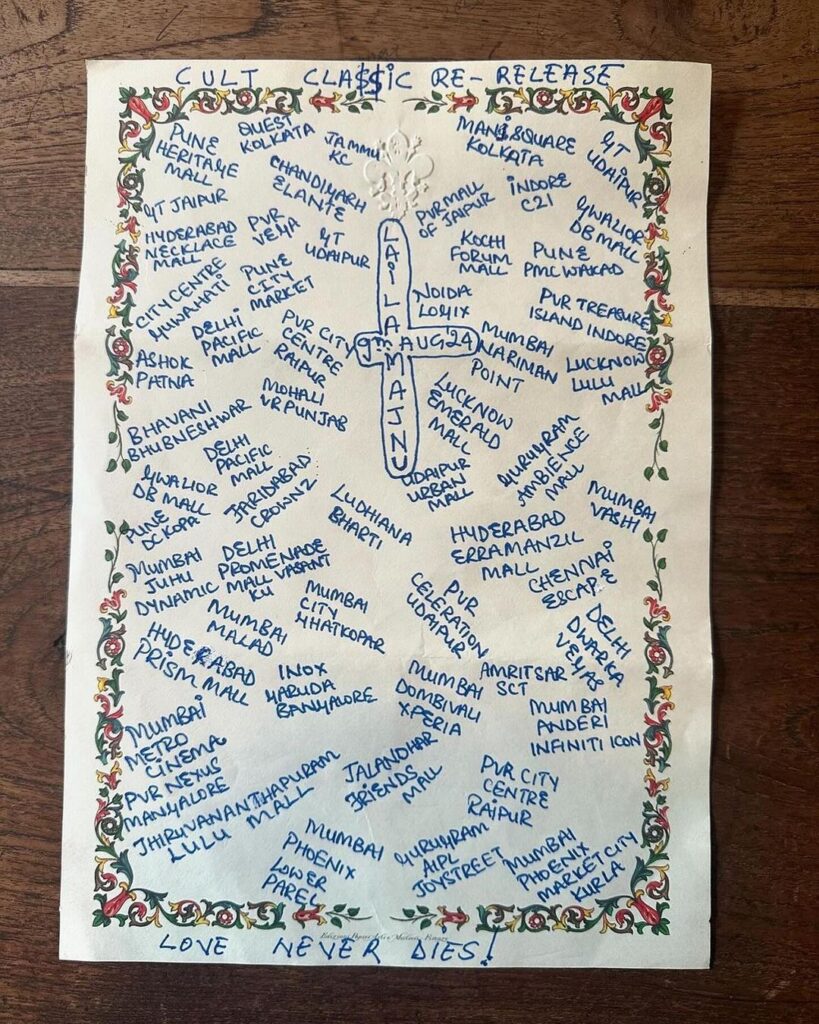 CULT CLA$$iC RE-RELEASE
PUNE
HERITAGE
MALL
QUEST
KOLKATA
JAMMU
KC
MANi SQUARE
KOLKATA
GT
UDAIPUR
GT JAIPUR
CHANDIGARH
ELANTE
PVR MALL
OF JAIPUR
iNDORE
C21
GWALIOR
DB MALL
HYDERABAD
NECKLACE
MALL
PVR
VEGA
GT
UDAIPUR
KOCHI
FORUM
MALL
PUNE
PMC WAKAD
CITY CENTRE
GUWAHATI
PUNE
CITY
MARKET
NOIDA
LOGIX
PVR TREASURE
ISLAND INDORE
DELHI
PACIFIC
MALL
PVR CITY
CENTRE
RAIPUR
LAiLA MAJNU
9TH AUG 24
MUMBAI
NARIMAN
POINT
LUCKNOW
LULU
MALL
ASHOK
PATNA
MOHALI
VR PUNJAB
LUCKNOW
EMERALD
MALL
GURUGRAM
AMBIENCE
MALL
BHAVANI
BHUBNESHWAR
DELHI
PACIFIC
MALL
UDAIPUR
URBAN
MALL
MUMBAI
VASHI
GWALIOR
DB MALL
FARIDABAD
CROWNZ
LUDHIANA
BHARTI
PUNE
DC KOPA
HYDERABAD
ERRAMANZIL
MALL
CHENNAI
ESCAPE
MUMBAI
JUHU
DYNAMIC
DELHI
PROMENADE
MALL VASANT
KU
MUMBAI
CITY
GHATKOPAR
PVR
CELERATION
UDAIPUR
DELHI
DWARKA
VEGAS
MUMBAI
MALAD
HYDERABAD
PRISM MALL
INOX
GARUDA
BANGALORE
MUMBAI
DOMBIVALI
XPERIA
AMRITSAR
SCT
MUMBAI
ANDERI
INFINITI ICON
MUMBAi
METRO
CINEMA
JALANDHAR
FRIENDS
MALL
PVR CITY
CENTRE
RAIPUR
PVR NEXUS
MANGALORE
THIRUVANANTHAPURAM
LULU MALL
MUMBAI
PHOENIX
LOWER
PAREL
GURUGRAM
AIPL
JOYSTREET
MUMBAI
PHOENIX
MARKET CITY
KURLA
LOVE NEVER DIES!